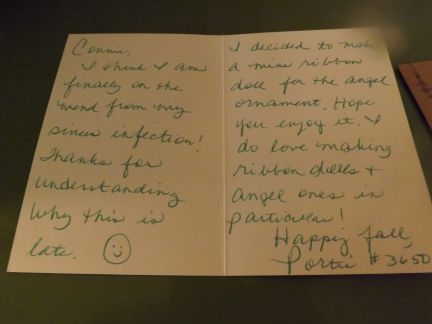 Connie,
I think I am
finally on the
mend from my
sinus infection!
Thanks for
understanding
why this is
late.
I decided to make
a mini ribbon
doll for the angel
ornament. Hope
you enjoy it. I
do love making
ribbon dolls +
angel ones in
particular!
Happy fall
#3650